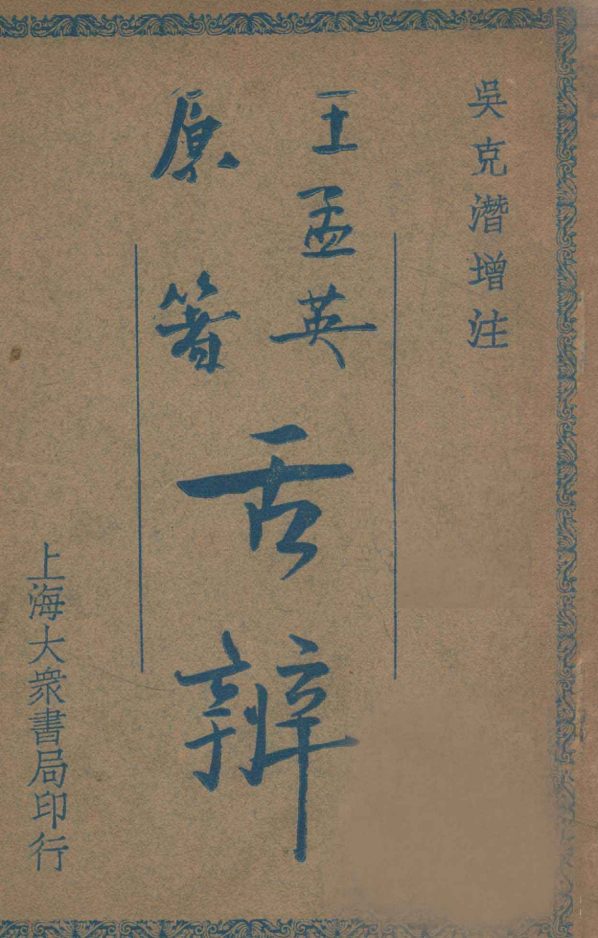 吳克潛增注
王孟英
原著
舌辨
上海大衆書局印行